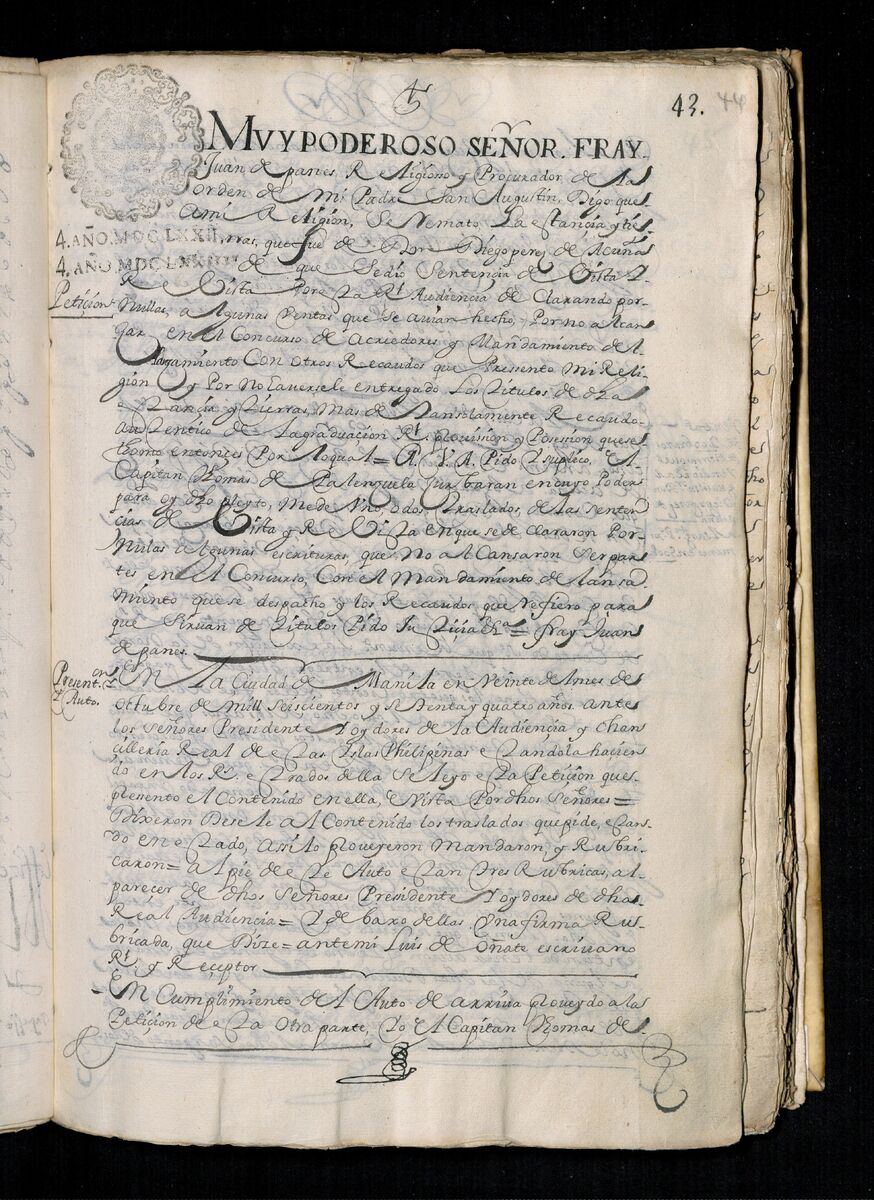 43. 44
MVY PODEROSO SEÑOR. FRAY
Juan de panes Religioso y Procurador de la
orden de Mi Padre San Augustin, Digo que
Ami Religion, Se Remato La estancia y tie
4. AÑO. MDCLXXIII rras, que fue de Don Diego perez de Acuña
4. AÑO MDCLXXIIII de que Sedio Sentencia de Vista Y
Petiçion Re Vista Por esta Rl Audiencia declarando por
Nullas, a algunas Ventas que se auian hecho, Por no alcan
sar en el Concurso de Acreedores y Mandamiento de l
lansamiento Con otros Recaudos que Pressento Mi Reli
gion y Por No hauersele entregado Los titulos de dha
estancia y tierras, mas de tan solamente Recaudo
autentico de La graduacion Rl prouision y Posesion que se
thomo entonçes Por loqual = A. V. A. Pido Y suplico, el
Capitan thomas de Palençuela Zurbaran en cuyo Poder
para oy dho pleyto, me de Vno, o dos traslados, de las senten
cias de Vista y ReVista en que se declararon Por
Nulas algunas escrituras, que No alCansaron Ser par
tes en el Concurso, Con el Mandamiento de lansa
miento que se despacho y los Recaudos que Refiero para
que Siruan de titulos Pido Justicia etta = fray Juan
de panes.
Present.on En La Ciudad de Manila en Veinte del mes de
Y Auto. Ottubre de mill Seiscientos y Setenta y quatro años. ante
los Señores Presidente Y oydores de la Audiencia y chan
cilleria Real de estas Islas Philipinas estandola hacien
do en los Rs. estrados della Se leyo esta Petiçion que
presento el Contenido en ella, e Vista Por dhos Señores =
Dixeron Desele al Contenido los traslados que pide, estan
do en estado, assi lo proueyeron mandaron, y Rubri
caron = al pie de este Auto estan tres Rubricas, al
parecer de dhos Señores Presidente Y oydores de dha
Real Audiencia = Y de baxo dellas, Vna firma Ru
bricada, que Dize = ante mi Luis de oñate escriuano
Rl, y Reçeptor
En Cumplimiento del Auto de arriua proueydo a la
Petiçion de esta Otra parte, Yo el Capitan thomas de